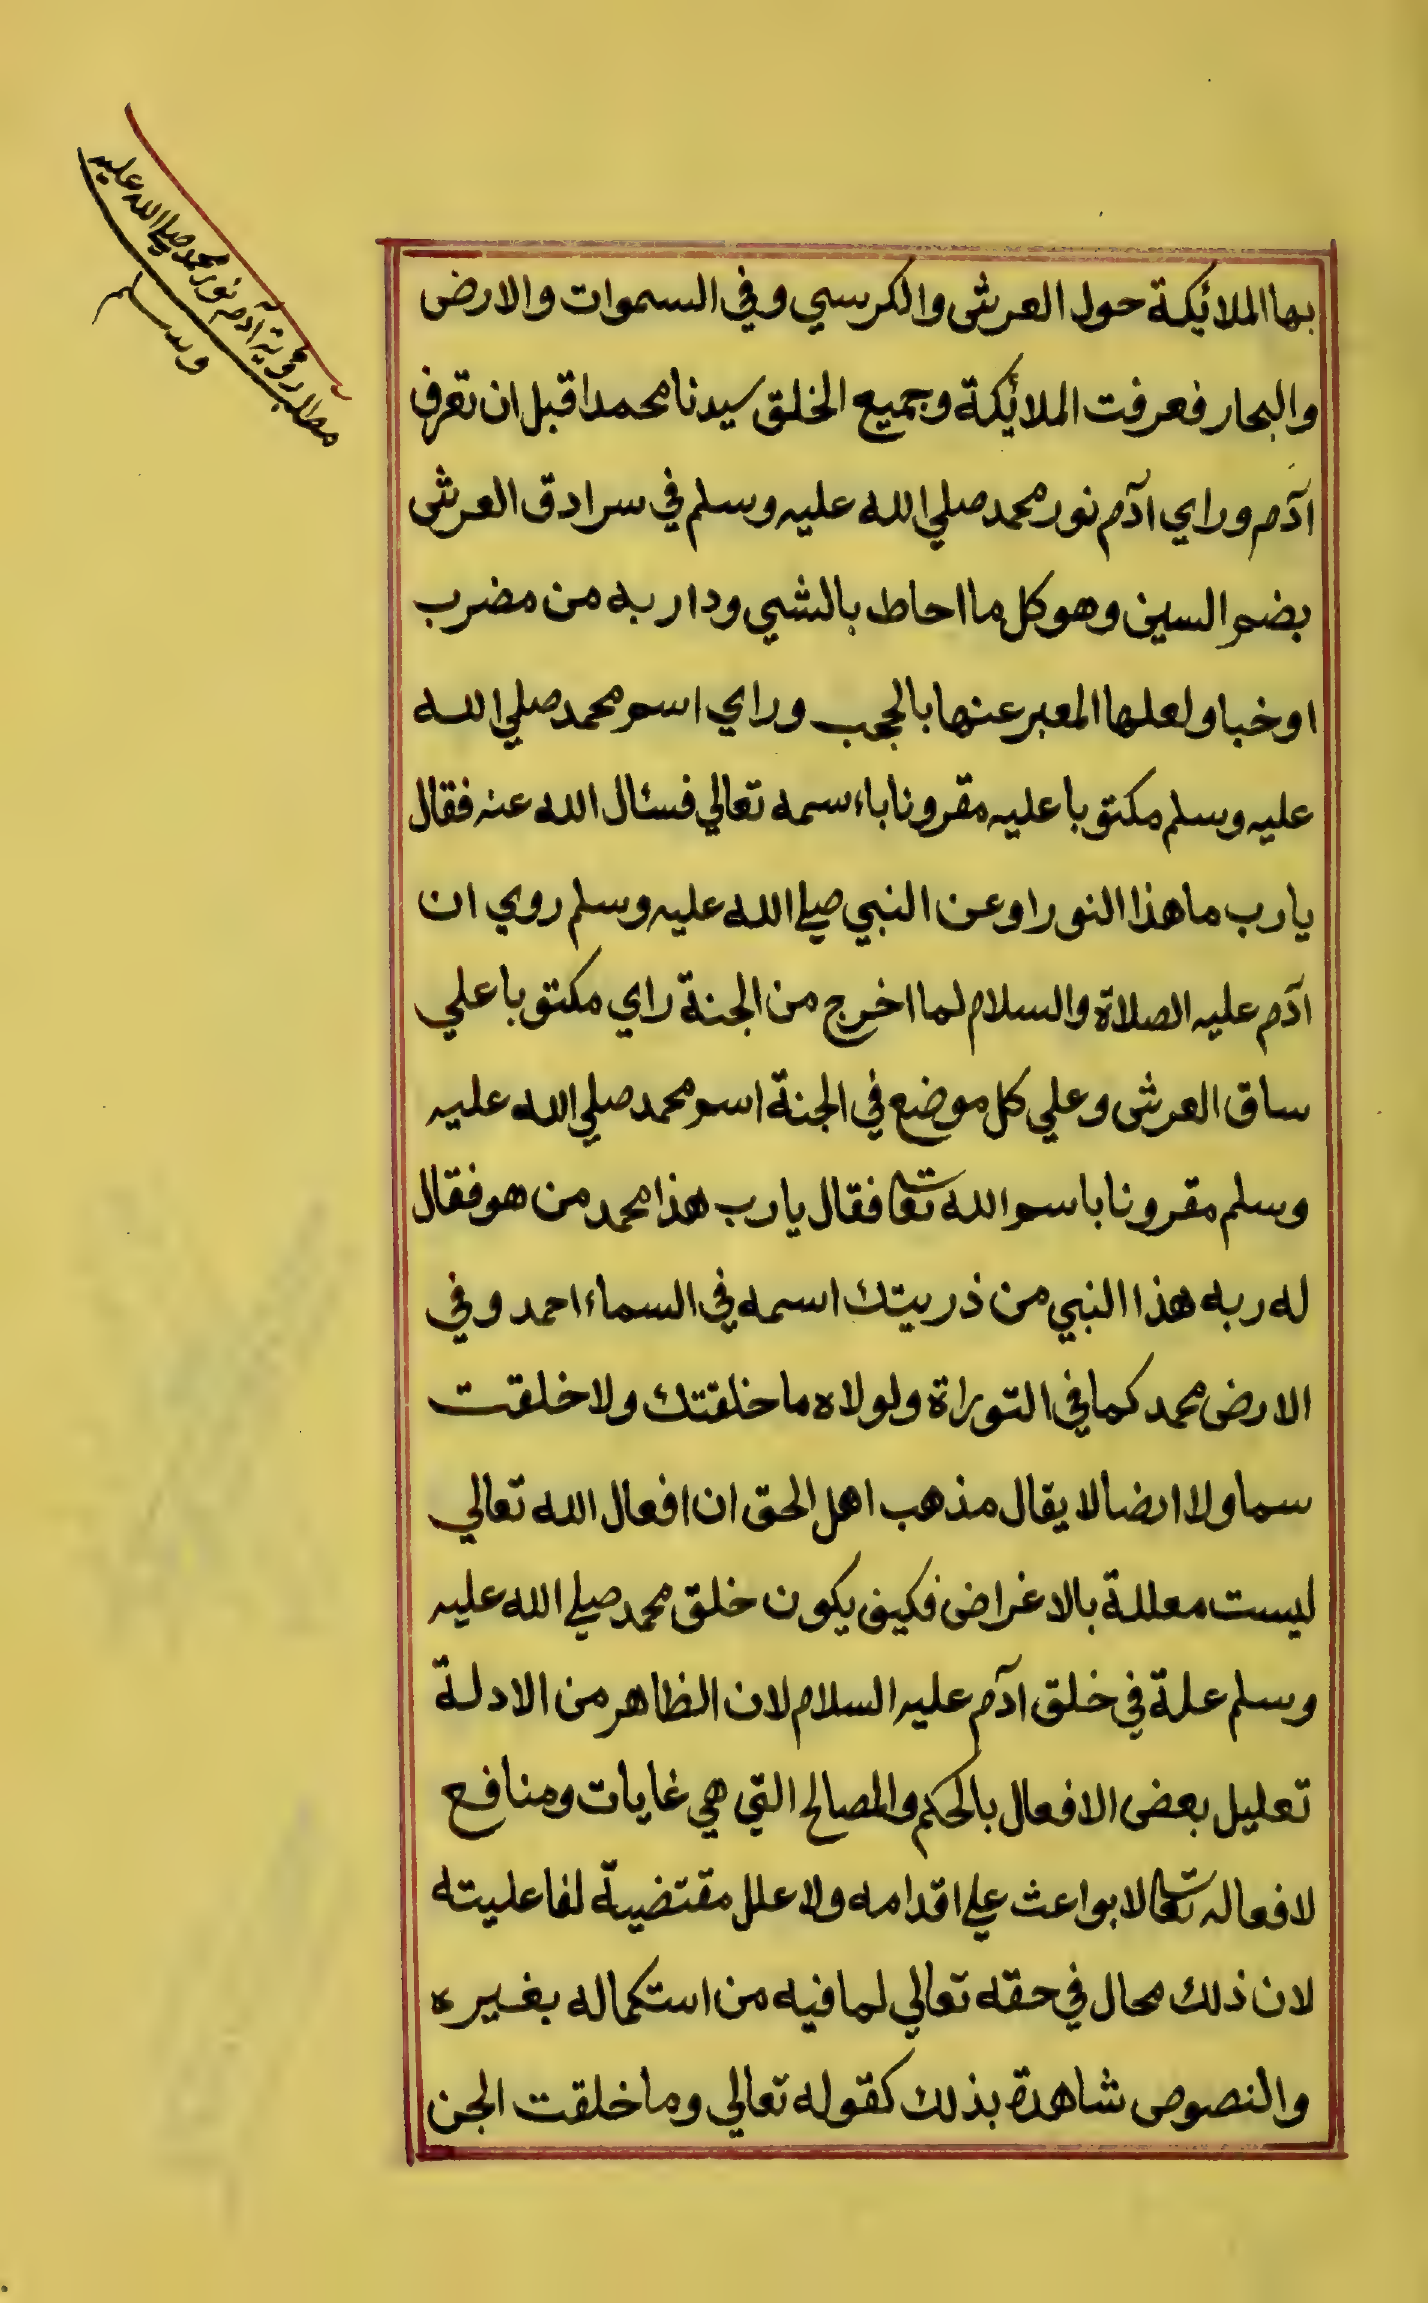 مطلب رؤية آدم نور محمد صلي الله عليه
وسلم
بها الملائكة حول العرش والكرسي وفي السموات والارض
والبحار فعرفت الملائكة وجميع الخلق سيدنا محمدا قبل ان تعرف
آدم وراي آدم نور محمد صلي الله عليه وسلم في سرادق العرش
بضم السين وهو كل ما احاط بالشي ودار به من مضرب
او خبا ولعلها المعبر عنها بالحجب وراي اسم محمد صلي الله
عليه وسلم مكتوبا عليه مقرونا باءسمه تعالي فسئال الله عنه فقال
يا رب ما هذا النور او عن النبي صلي الله عليه وسلم روي ان
آدم عليه الصلاة والسلام لما اخرج من الجنة راي مكتوبا علي
ساق العرش وعلي كل موضع في الجنة اسم محمد صلي الله عليه
وسلم مقرونا باسم الله تعا فقال يا رب هذا محمد من هو فقال
له ربه هذا النبي من ذريتك اسمه في السماء احمد وفي
الارض محمد كما في التوراة ولولاه ما خلقتك ولا خلقت
سما ولا ارضا لا يقال مذهب اهل الحق ان افعال الله تعالي
ليست معللة بالاغراض فكيف يكون خلق محمد صلي الله عليه
وسلم علة في خلق آدم عليه السلام لان الظاهر من الادلة
تعليل بعض الافعال بالحكم والمصالح التي هي غايات ومنافع
لافعاله تعا لا بواعث علي اقدامه ولا علل مقتضية لفاعليته
لان ذلك محال في حقه تعالي لما فيه من استكماله بغيره
والنصوص شاهدة بذلك كقوله تعالي وما خلقت الجن